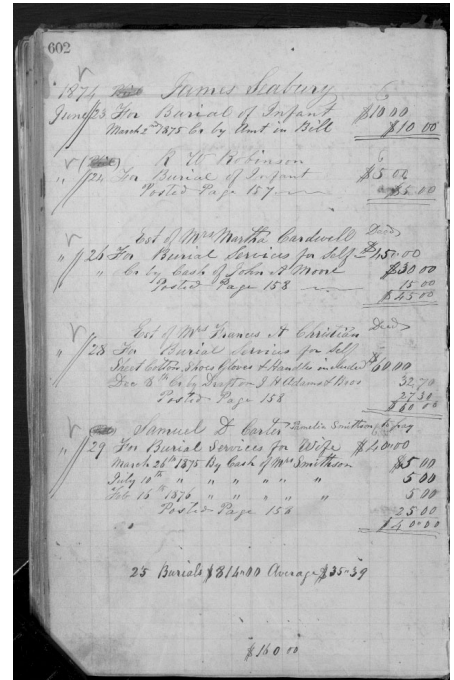 602
1874 James Seabury
June 23 For Burial of Infant $10 00
March 2nd 1875 Cr by Amt in Bill $10 00
R W Robinson
" 24 For Burial of Infant $5 00
Posted Page 157 $5 00
Est of Mrs Martha Cardwell Dead
" 26 For Burial Services for Self $45 00
" Cr by Cash of John A Moore $30 00
Posted Page 158 15 00
$45 00
Est of Mrs Frances A Christian Dead
" 28 For Burial Services for Self
Sheet Cotton, Shoes Gloves & Handles included $60 00
Dec 8th Cr by Draft on J H Adams & Bros 32,70
Posted Page 158 27 30
$60 00
Samuel D Carter Permelia Smithson to pay
" 29 For Burial Services for Wife $40 00
March 26th 1875 By Cash of Mrs Smithson $5 00
July 10th " " " " " " 5 00
Feb 16th 1876 " " " " " 5 00
Posted Page 158 25 00
$40 00
23 Burials $814-00 Average $35-39
$160 00